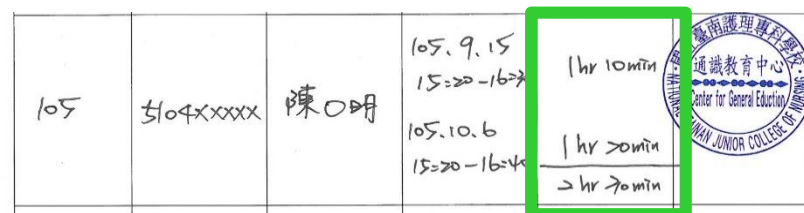 105
5104XXXXX
陳〇明
105.9.15
15:20-16:3
1hr 10min
105.10.6
15:20-16:40
1hr 20min
2hr 30min
國立臺南護理專科學校
通識教育中心
Center for General Eduction
NATIONAL TAINAN JUNIOR COLLEGE OF NURSING